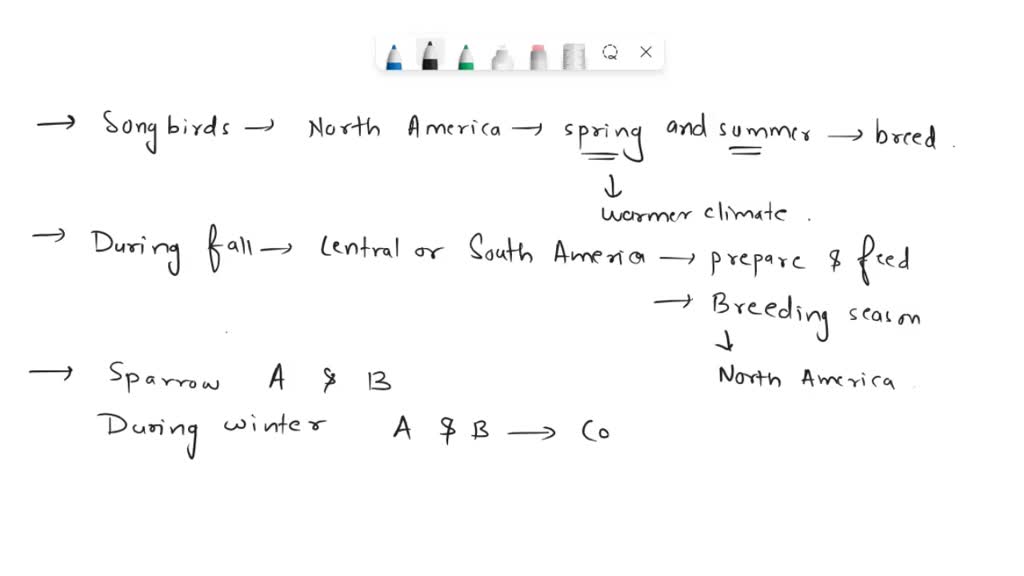 → Songbirds → North America → spring and summer → breed.
↓
warmer climate.
→ During fall → Central or South America → prepare & feed
→ Breeding season
↓
North America
→ Sparrow A & B
During winter A & B → Co